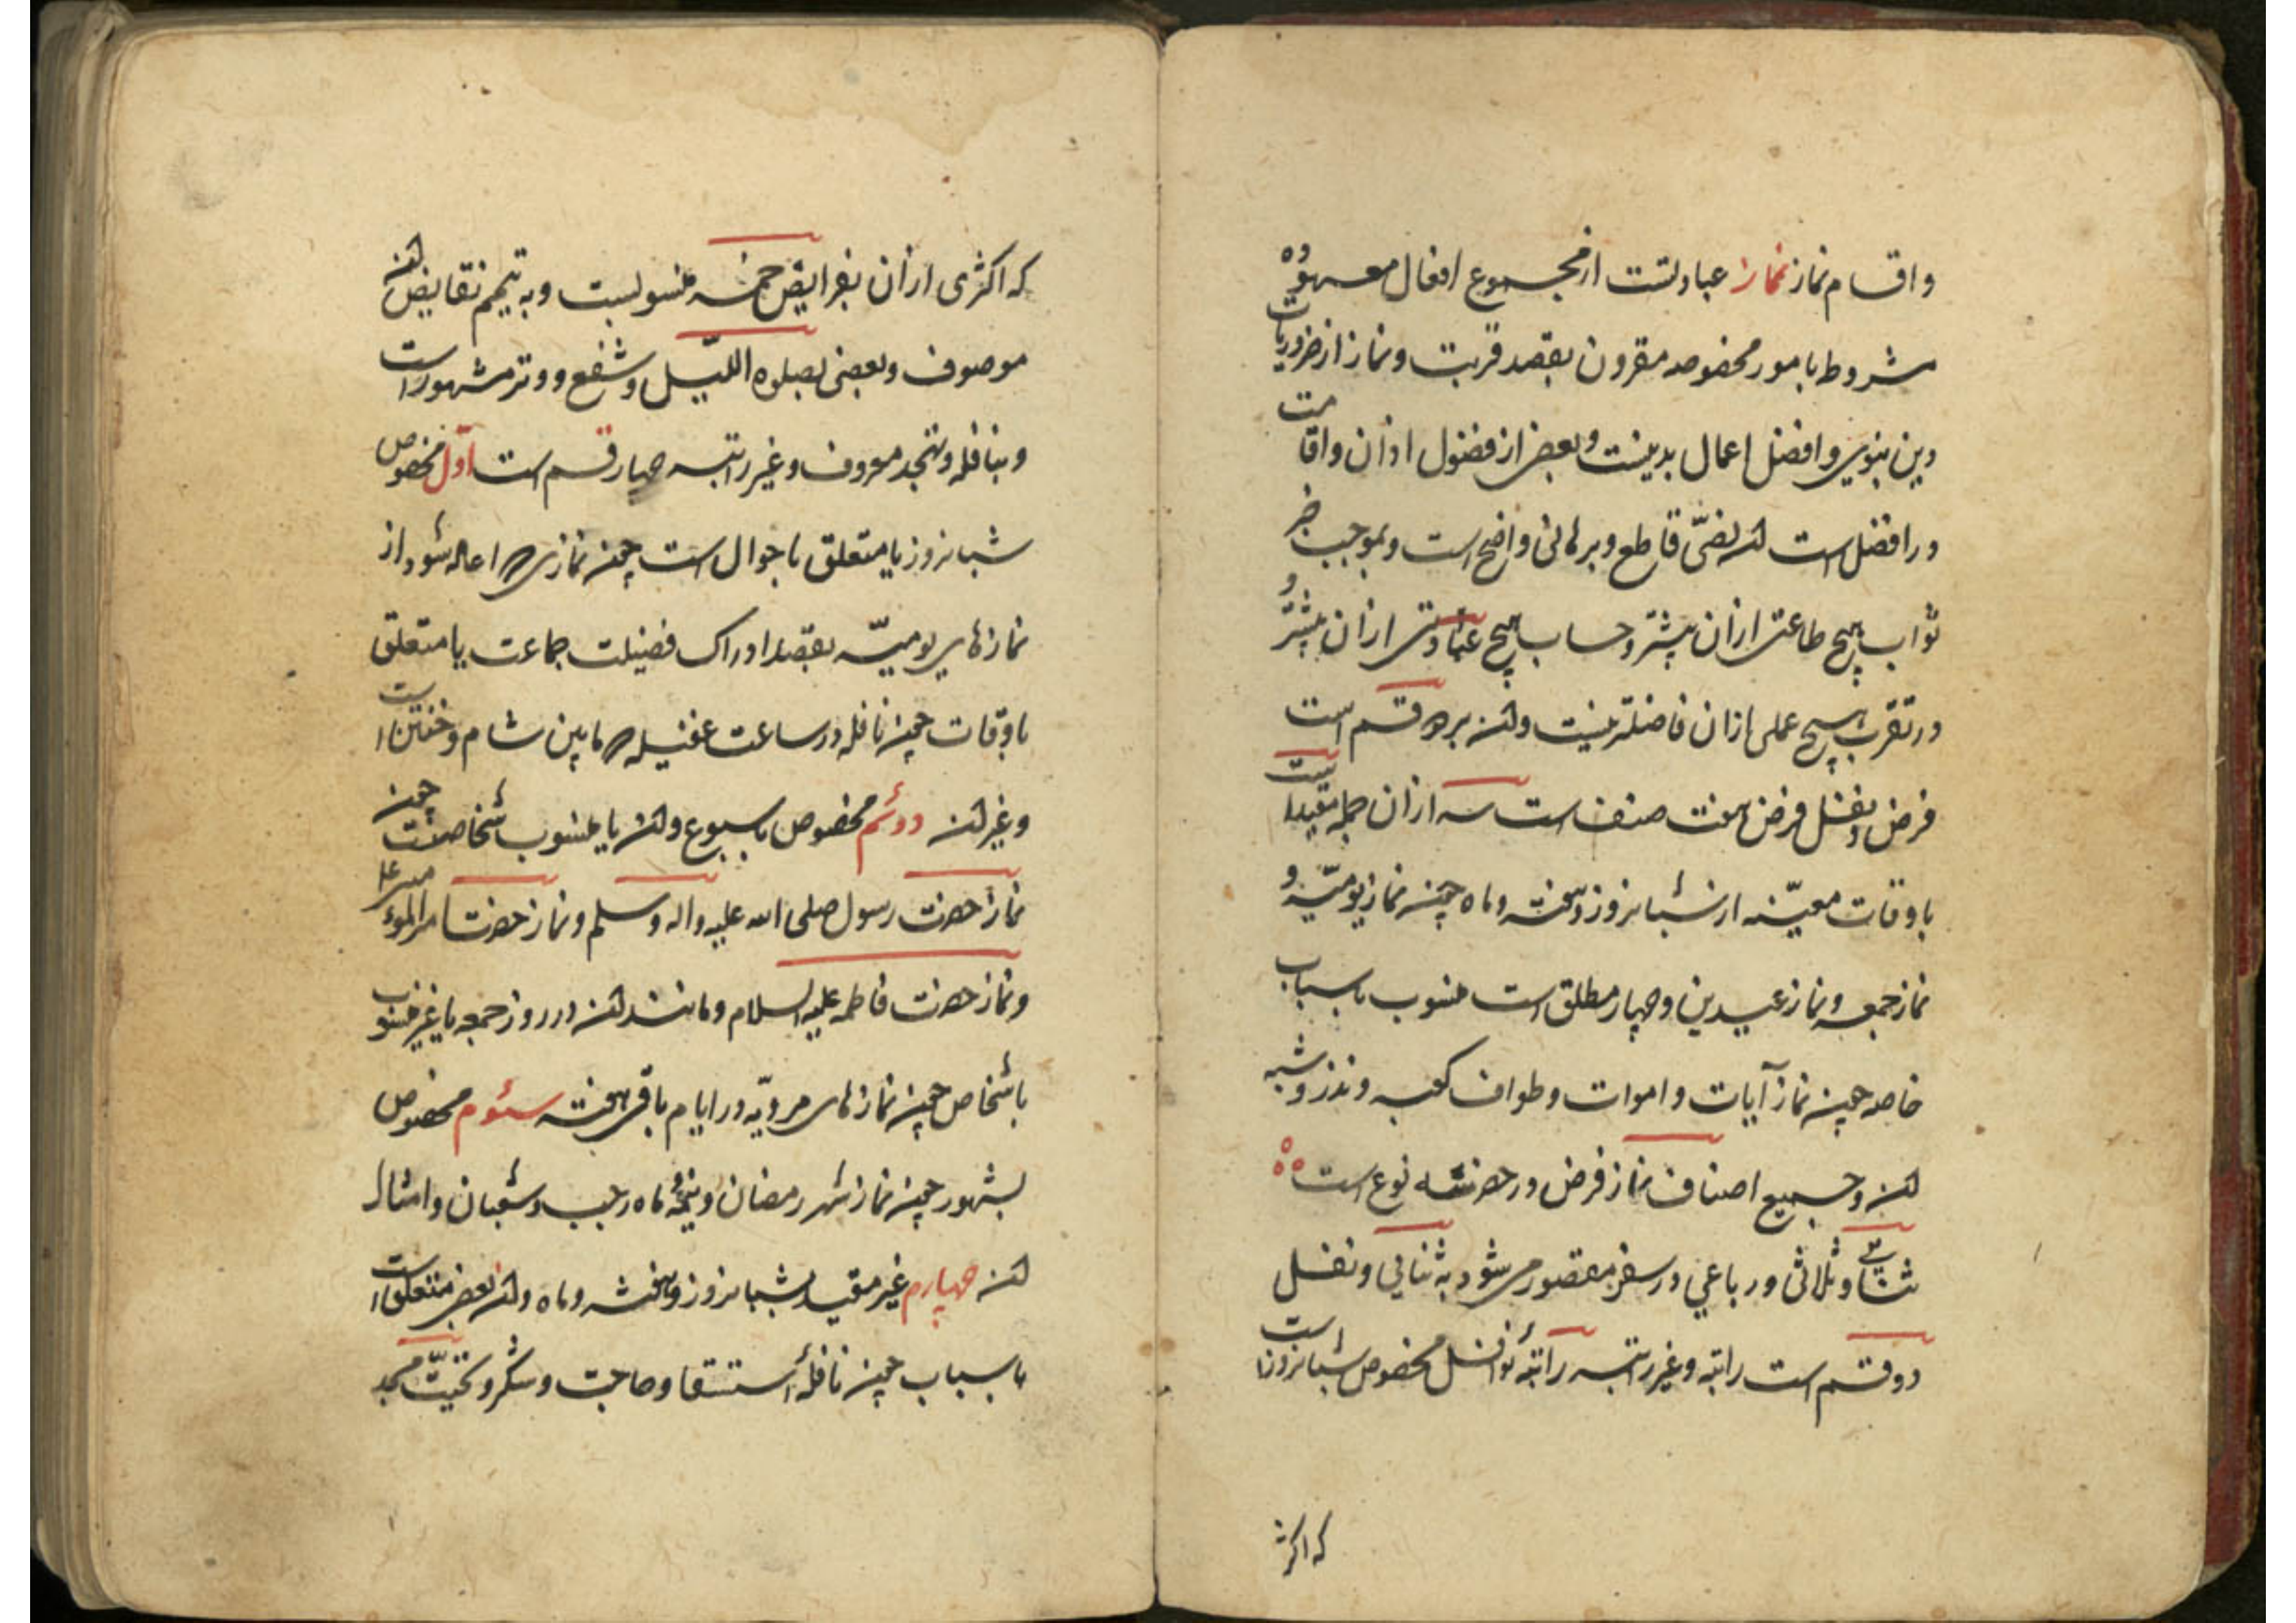 واقسام نماز نماز عبادتست از مجموع افعال معهوده
مشروط بامور مخصوصه مقرون بقصد قربت و نماز از ضروریات
دین نبوی و افضل اعمال بدنیست و بعضی از فضول اذان واقامت
در افضلیت آن نصّی قاطع و برهانی واضح است و بموجب خبر
ثواب هیچ طاعتی ازان بیشتر و حساب هیچ عبادتی ازان پیشتر و
در تقرب هیچ عملی ازان فاضلتر نیست وآن بر دو قسم است
فرض و نفل فرض هفت صنف است سه ازان جمله مقید است
باوقات معیّنه از شبانروز و هفته و ماه چون نماز یومیّه و
نماز جمعه و نماز عیدین و چهار مطلق است منسوب باسباب
خاصه چون نماز آیات و اموات و طواف کعبه و نذر و شبه
آن و جمیع اصناف نماز فرض در حضر سه نوع است
ثنائی و ثلاثی و رباعی در سفر مقصور می شود به ثنایی و نفل
دو قسم است راتبه و غیر راتبه راتبه نوافل مخصوص شبانروز است
که اکثر
که اکثری ازان بفرایض خمسه منسوبست و به تتمیم نقایص آن
موصوف و بعضی بصلوه اللیل و شفع و وتر مشهور است
و بنافله و تهجد معروف و غیر راتبه چهار قسم است اوّل مخصوص
شبانروز یا متعلق باحوال است چون نمازی که اعاده شود از
نمازهای یومیّه بقصد ادراک فضیلت جماعت یا متعلق
باوقات چون نافله در ساعت غفیله که مابین شام و خفتن است
و غیر آن دوئم مخصوص باسبوع وآن یا منسوب باشخاصست چون
نماز حضرت رسول صلی الله علیه واله وسلم و نماز حضرت امیرالمؤمنین ع
و نماز حضرت فاطمه علیه السلام و مانند آن در روز جمعه یا غیر منسوب
باشخاص چون نمازهای مرویّه در ایام باقی هفته سئوم مخصوص
بشهور چون نماز شهر رمضان و نیمه ماه رجب و شعبان و امثال
آن چهارم غیر مقید بشبانروز و هفته و ماه وآن بعضی متعلق است
باسباب چون نافلهٔ استسقا و حاجت و شکر و تحیّت مسجد